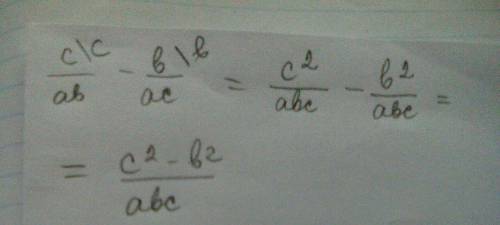 c\c/ab - b\b/ac = c²/abc - b²/abc =
= c² - b²/abc